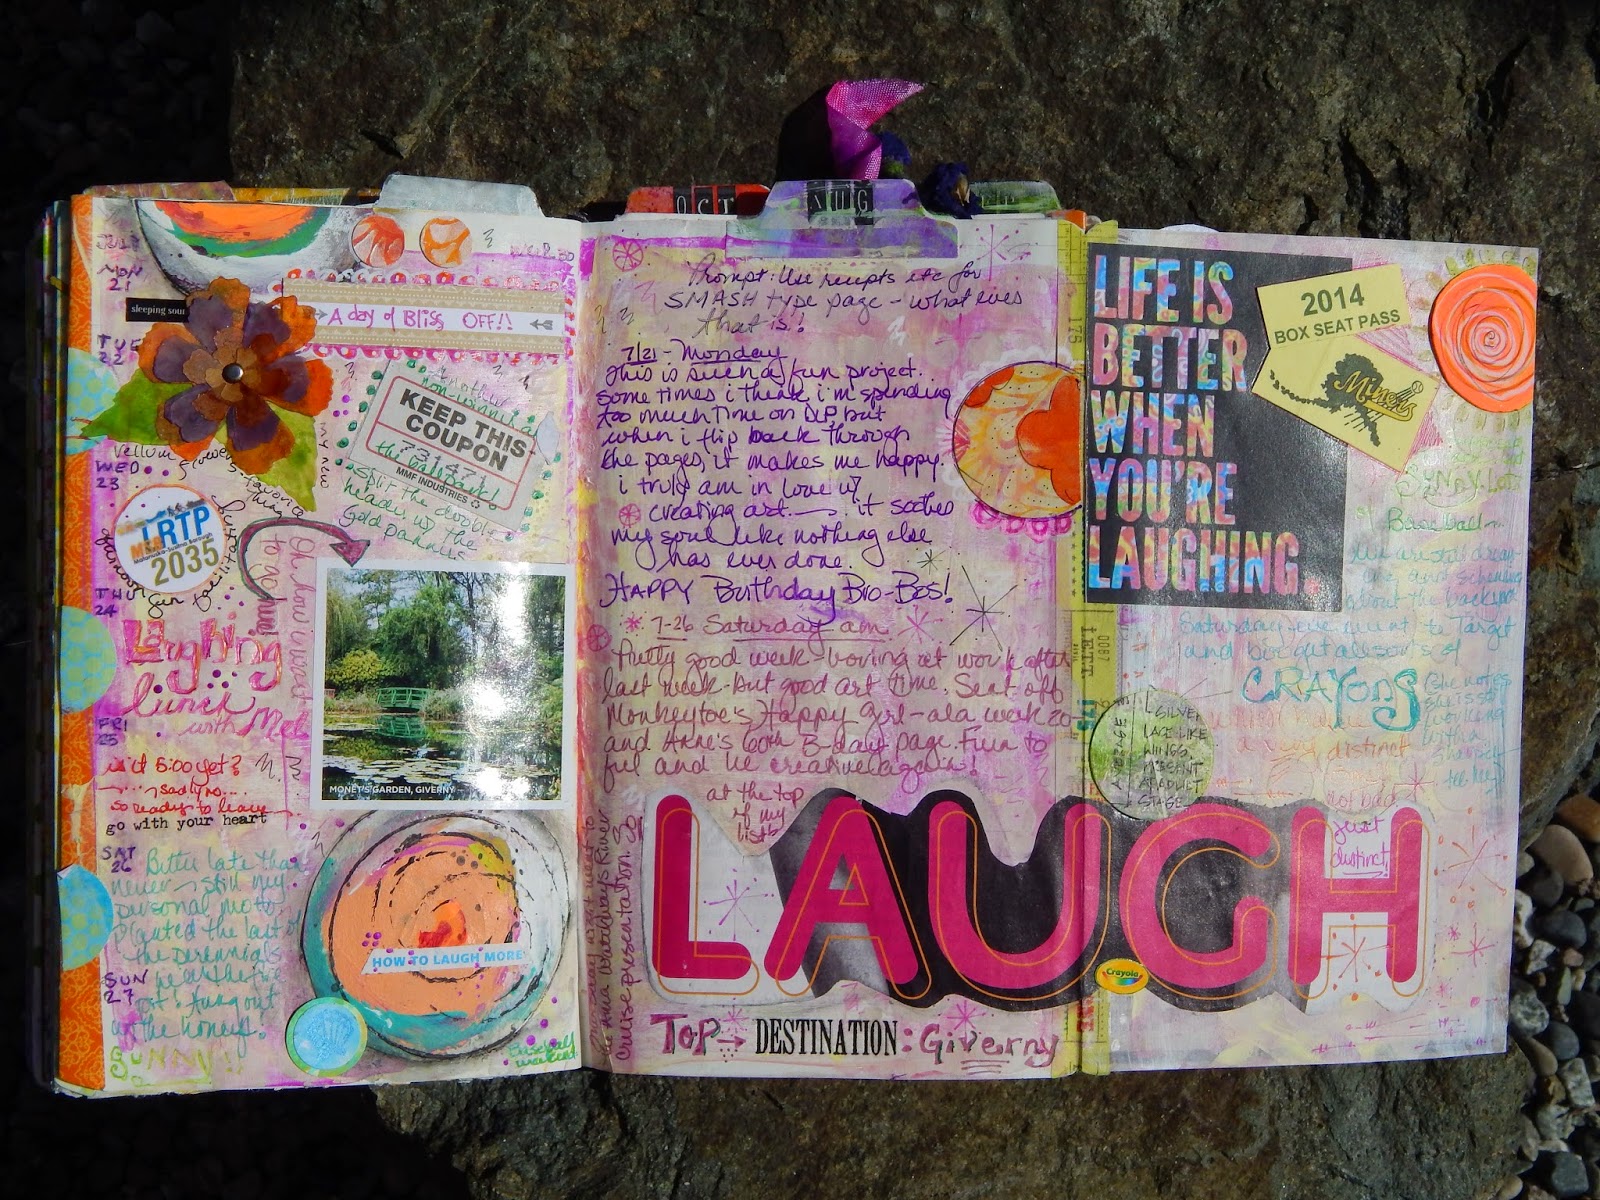 OCT
AUG
JULY
MON
21
sleeping soul
A day of Bliss OFF!!
TUE
22
another
non-winning
KEEP THIS
COUPON
731471
MMF INDUSTRIES
the baseball
split the double-
header w/ the
gold pannies
vellum flowers
my new
favorite
thing
WED
23
LRTP
Matanuska-Susitna Borough
2035
afternoon
fun facilitating
THU
24
Oh how i want
to go here!
Laughing
lunch
with Mel
MONET'S GARDEN, GIVERNY
FRI
25
is it 5:00 yet?
sadly no...
so ready to leave
go with your heart
SAT
26
Better late than
never - still my
personal motto,
planted the last of
the perennials
SUN
27
hung out
w/ the honeys.
SUNNY!
HOW TO LAUGH MORE
Prompt: Use receipts etc for
SMASH type page - what ever
that is!
7/21 - Monday
This is such a fun project.
some times i think i'm spending
too much time on DLP, but
when i flip back through
the pages, it makes me happy.
i truly am in love w/
creating art. it soothes
my soul like nothing else
has ever done.
HAPPY Birthday Bro-Bos!
7-26 Saturday am
Pretty good week - boring at work after
last week - but good art time. Sent off
Monkeytoe's Happy Girl - ala week 20
and Anne's 60th B-day page. Fun to
feel and be creative again!
at the top
of my
list!
cruise presentation. So
LAUGH
TOP → DESTINATION: Giverny
LIFE IS
BETTER
WHEN
YOU'RE
LAUGHING.
2014
BOX SEAT PASS
Miners
175
0087
LETT
Baseball
Saturday eve went to Target
and bought all sorts of
CRAYONS
She notes
she is so
working
with a
a very distinct
SILVER
LACE LIKE
WINGS
not bad
just
distinct.
Crayola